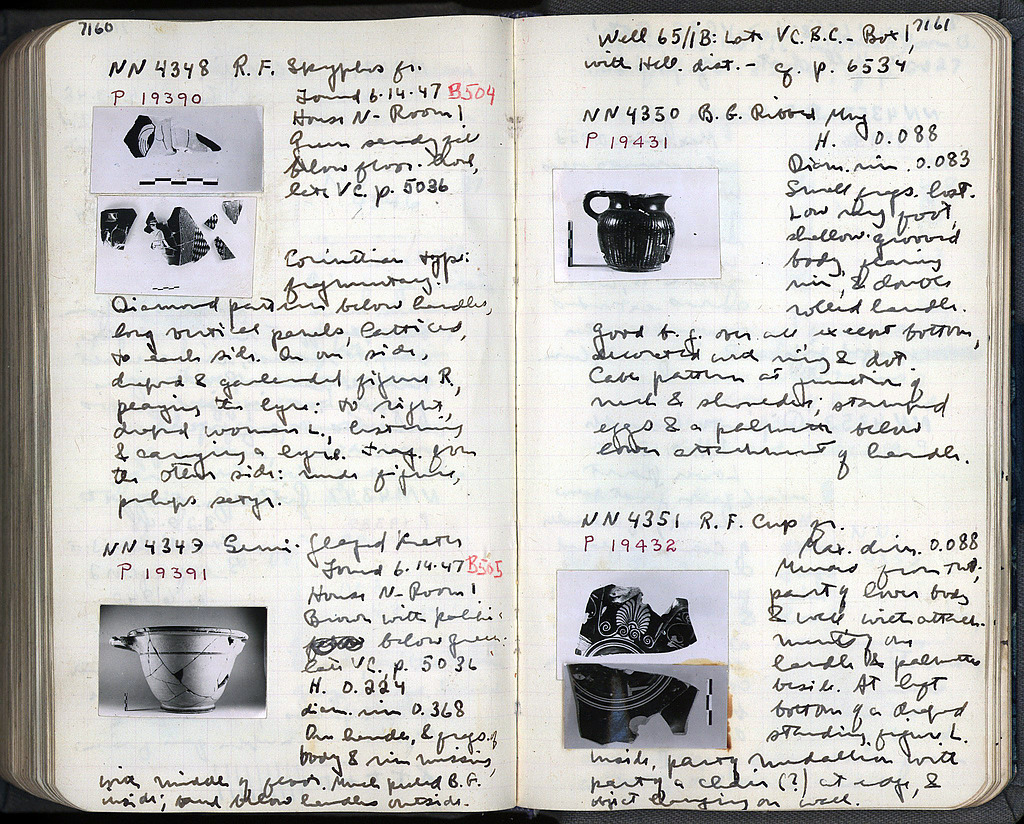 7160
NN 4348 R. F. Skyphos fr.
P 19390
Found 6.14.47 B504
House N - Room 1
Green sandy fill
below floor. Dark,
late V C. p. 5036
Corinthian type:
fragmentary.
Diamond pattern below handles,
long vertical panels, latticed,
to each side. On one side,
draped & garlanded figure R.,
playing the lyre: to right,
draped woman L., listening
& carrying a lyre. Frag. from
the other side: nude figure,
perhaps satyr.
NN 4349 Semi-glazed krater
P 19391
Found 6.14.47 B505
House N - Room 1
Brown with
below green.
late V C. p. 5036
H. 0.224
diam. rim 0.368
One handle, & frags. of
body & rim missing,
with middle of floor. Much peeled B.G.
inside; band below handles outside.
7161
Well 65/1B: Late V C. B.C. - Box 1,
with Hell. dist. - cf. p. 6534
NN 4350 B. G. Ribbed Mug
P 19431
H. 0.088
Diam. rim. 0.083
Small frags. lost.
Low ring foot,
shallow-grooved
body, flaring
rim, & double
rolled handle.
Good b. g. over all except bottom,
decorated with ring & dot.
Cable pattern at junction of
neck & shoulder; stamped
eggs & a palmette below
lower attachment of handle.
NN 4351 R. F. Cup fr.
P 19432
Max. dim. 0.088
Mended from two,
part of lower body
& wall with attach-
ment of one
handle & palmette
beside. At left
bottom of a draped
standing figure, L.
Inside, part of medallion with
part of a chair (?) at edge, &
object hanging on wall.